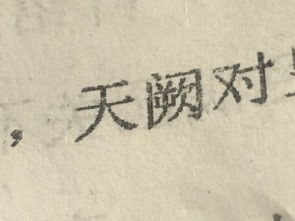 ，天阙对